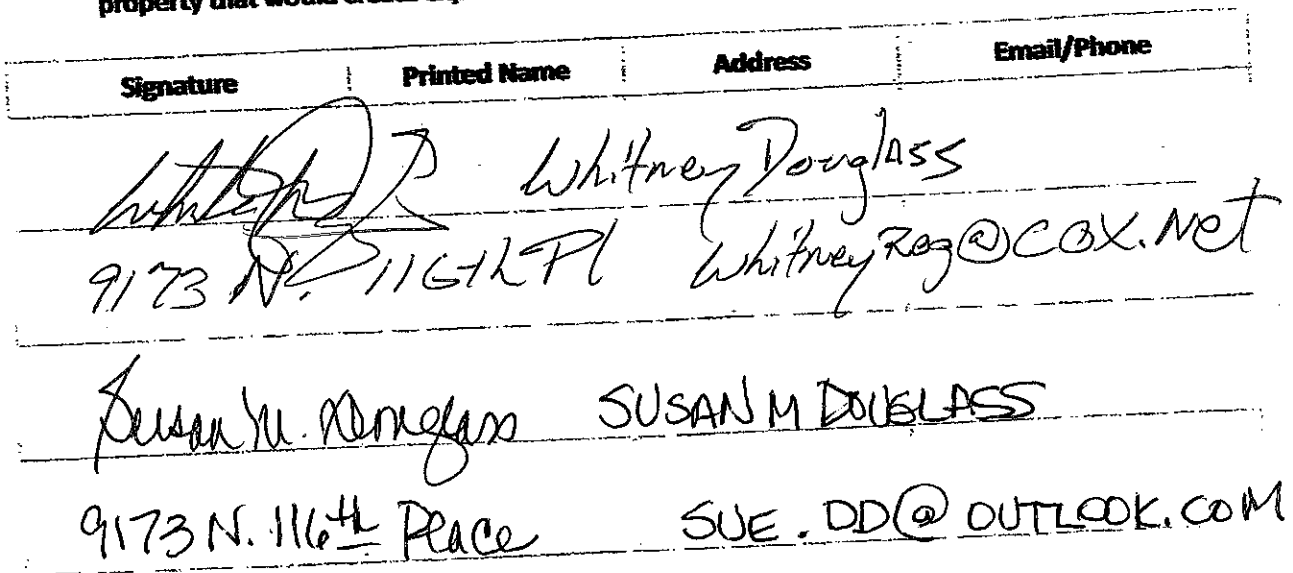 property that would create
Signature Printed Name Address Email/Phone
Whitney Douglass
9173 N. 116th Pl WhitneyReg@COX.Net
Susan M. Douglass SUSAN M DOUGLASS
9173 N. 116th Place SUE.DD@OUTLOOK.COM